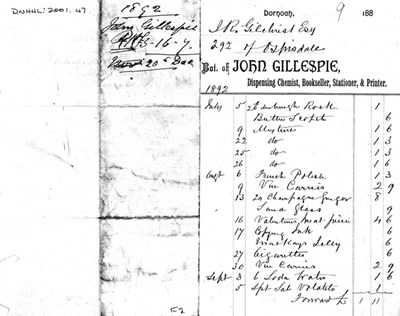 DNHHL: 2001. 47
1892
John Gillespie
£1-16-7
20th Dec
52
Dornoch, 9 188
J.R. Gilchrist Esq
292 of Ospisdale
Bot. of JOHN GILLESPIE,
Dispensing Chemist, Bookseller, Stationer, & Printer.
1892
July 5 Edinburgh Rock 1
Butter Scotch 6
9 Mixture 1 6
22 do 1 3
25 do 1 3
26 do 1 6
Augt 6 French Polish 1 3
9 2 9
13 24 Champagne 8
Glass 9
16 Valentines Meat Juice 4 6
17 Copying Ink 6
Jelly 6
27 Cigarettes 6
30 2 9
Sept 3 6 Soda Water 1 6
5 Spt Sal Volatile 1
Forward £ 1 11